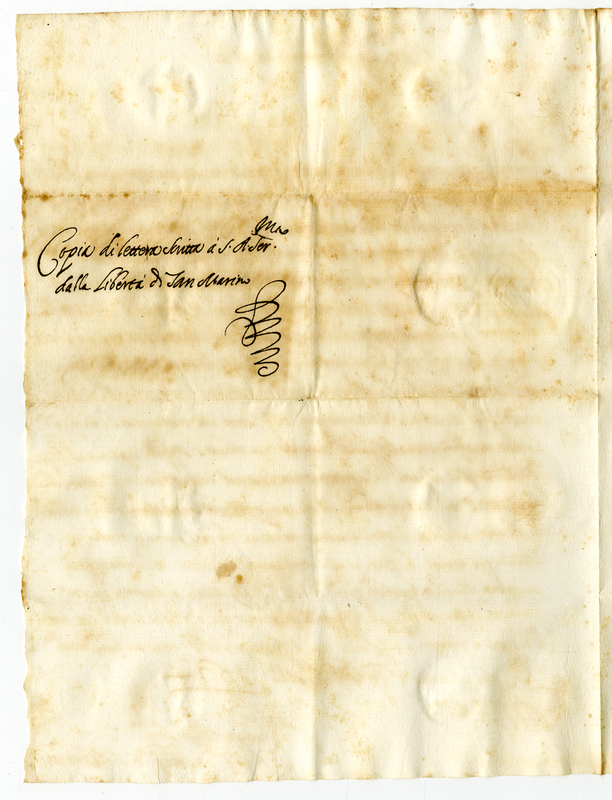 Copia di lettera scritta à S. A. Ser.ma
dalla Libertà di San Marino